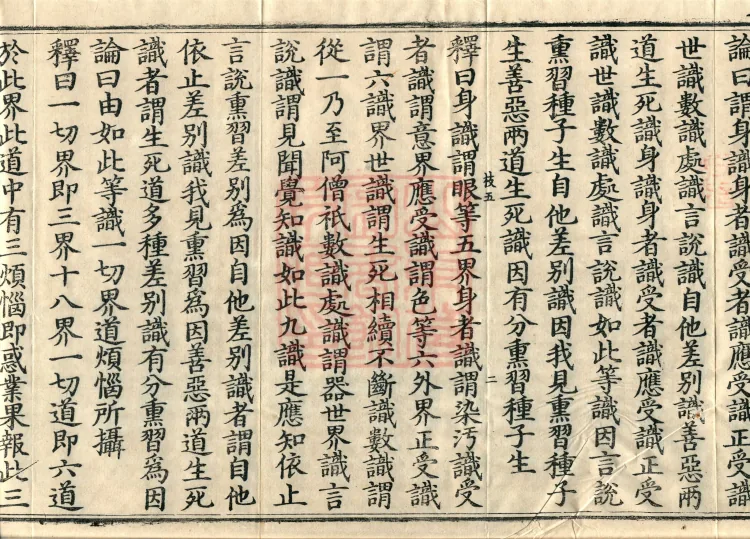 論曰謂身識身者識受者識應受識正受識
世識數識處識言說識自他差別識善惡兩
道生死識身識身者識受者識應受識正受
識世識數識處識言說識如此等識因言說
熏習種子生自他差別識因我見熏習種子
生善惡兩道生死識因有分熏習種子生
枝五
二
釋曰身識謂眼等五界身者識謂染污識受
者識謂意界應受識謂色等六外界正受識
謂六識界世識謂生死相續不斷識數識謂
從一乃至阿僧祇數識處識謂器世界識言
說識謂見聞覺知識如此九識是應知依止
言說熏習差別為因自他差別識者謂自他
依止差別識我見熏習為因善惡兩道生死
識者謂生死道多種差別識有分熏習為因
論曰由如此等識一切界道煩惱所攝
釋曰一切界即三界十八界一切道即六道
於此界此道中有三煩惱即惑業果報此三